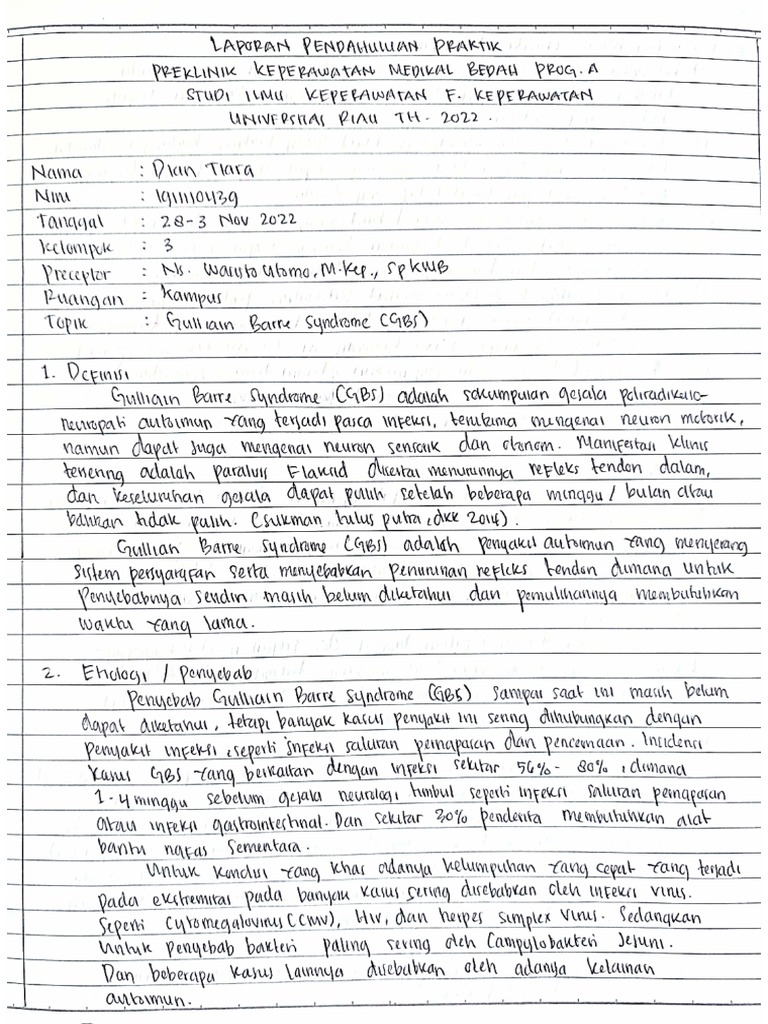 LAPORAN PENDAHULUAN PRAKTIK
PREKLINIK KEPERAWATAN MEDIKAL BEDAH PROG. A
STUDI ILMU KEPERAWATAN F. KEPERAWATAN
UNIVERSITAS RIAU TH. 2022.
Nama : Dian Tiara
Nim : 1911110439
Tanggal : 28-3 Nov 2022
Kelompok : 3
Preceptor : Ns. Wasisto Utomo, M.Kep., Sp KMB
Ruangan : Kampus
Topik : Gulliain Barre Syndrome (GBS)
1. Definisi
Gulliain Barre Syndrome (GBS) adalah sekumpulan gejala poliradikulo-
neuropati autoimun yang terjadi pasca infeksi, terutama mengenai neuron motorik,
namun dapat juga mengenai neuron sensorik dan otonom. Manifestasi klinis
tersering adalah paralisis flaksid disertai menurunnya refleks tendon dalam,
dan keseluruhan gejala dapat pulih setelah beberapa minggu / bulan atau
bahkan tidak pulih. (Sukman tulus putra, dkk 2015).
Gullian Barre Syndrome (GBS) adalah penyakit autoimun yang menyerang
sistem persyarafan serta menyebabkan penurunan refleks tendon dimana untuk
penyebabnya sendiri masih belum diketahui dan pemulihannya membutuhkan
waktu yang lama.
2. Etiologi / Penyebab
Penyebab Gulliain Barre Syndrome (GBS) sampai saat ini masih belum
dapat diketahui, tetapi banyak kasus penyakit ini sering dihubungkan dengan
penyakit infeksi, seperti infeksi saluran pernapasan dan pencernaan. Insidensi
kasus GBS yang berkaitan dengan infeksi sekitar 56% - 80%, dimana
1-4 minggu sebelum gejala neurologi timbul seperti infeksi saluran pernapasan
atau infeksi gastrointestinal. Dan sekitar 30% penderita membutuhkan alat
bantu nafas sementara.
Untuk kondisi yang khas adanya kelumpuhan yang cepat yang terjadi
pada ekstremitas pada banyak kasus sering disebabkan oleh infeksi virus.
Seperti Cytomegalovirus (CMV), HIV, dan herpes simplex virus. Sedangkan
untuk penyebab bakteri paling sering oleh Campylobakteri Jejuni.
Dan beberapa kasus lainnya disebabkan oleh adanya kelainan
autoimun.